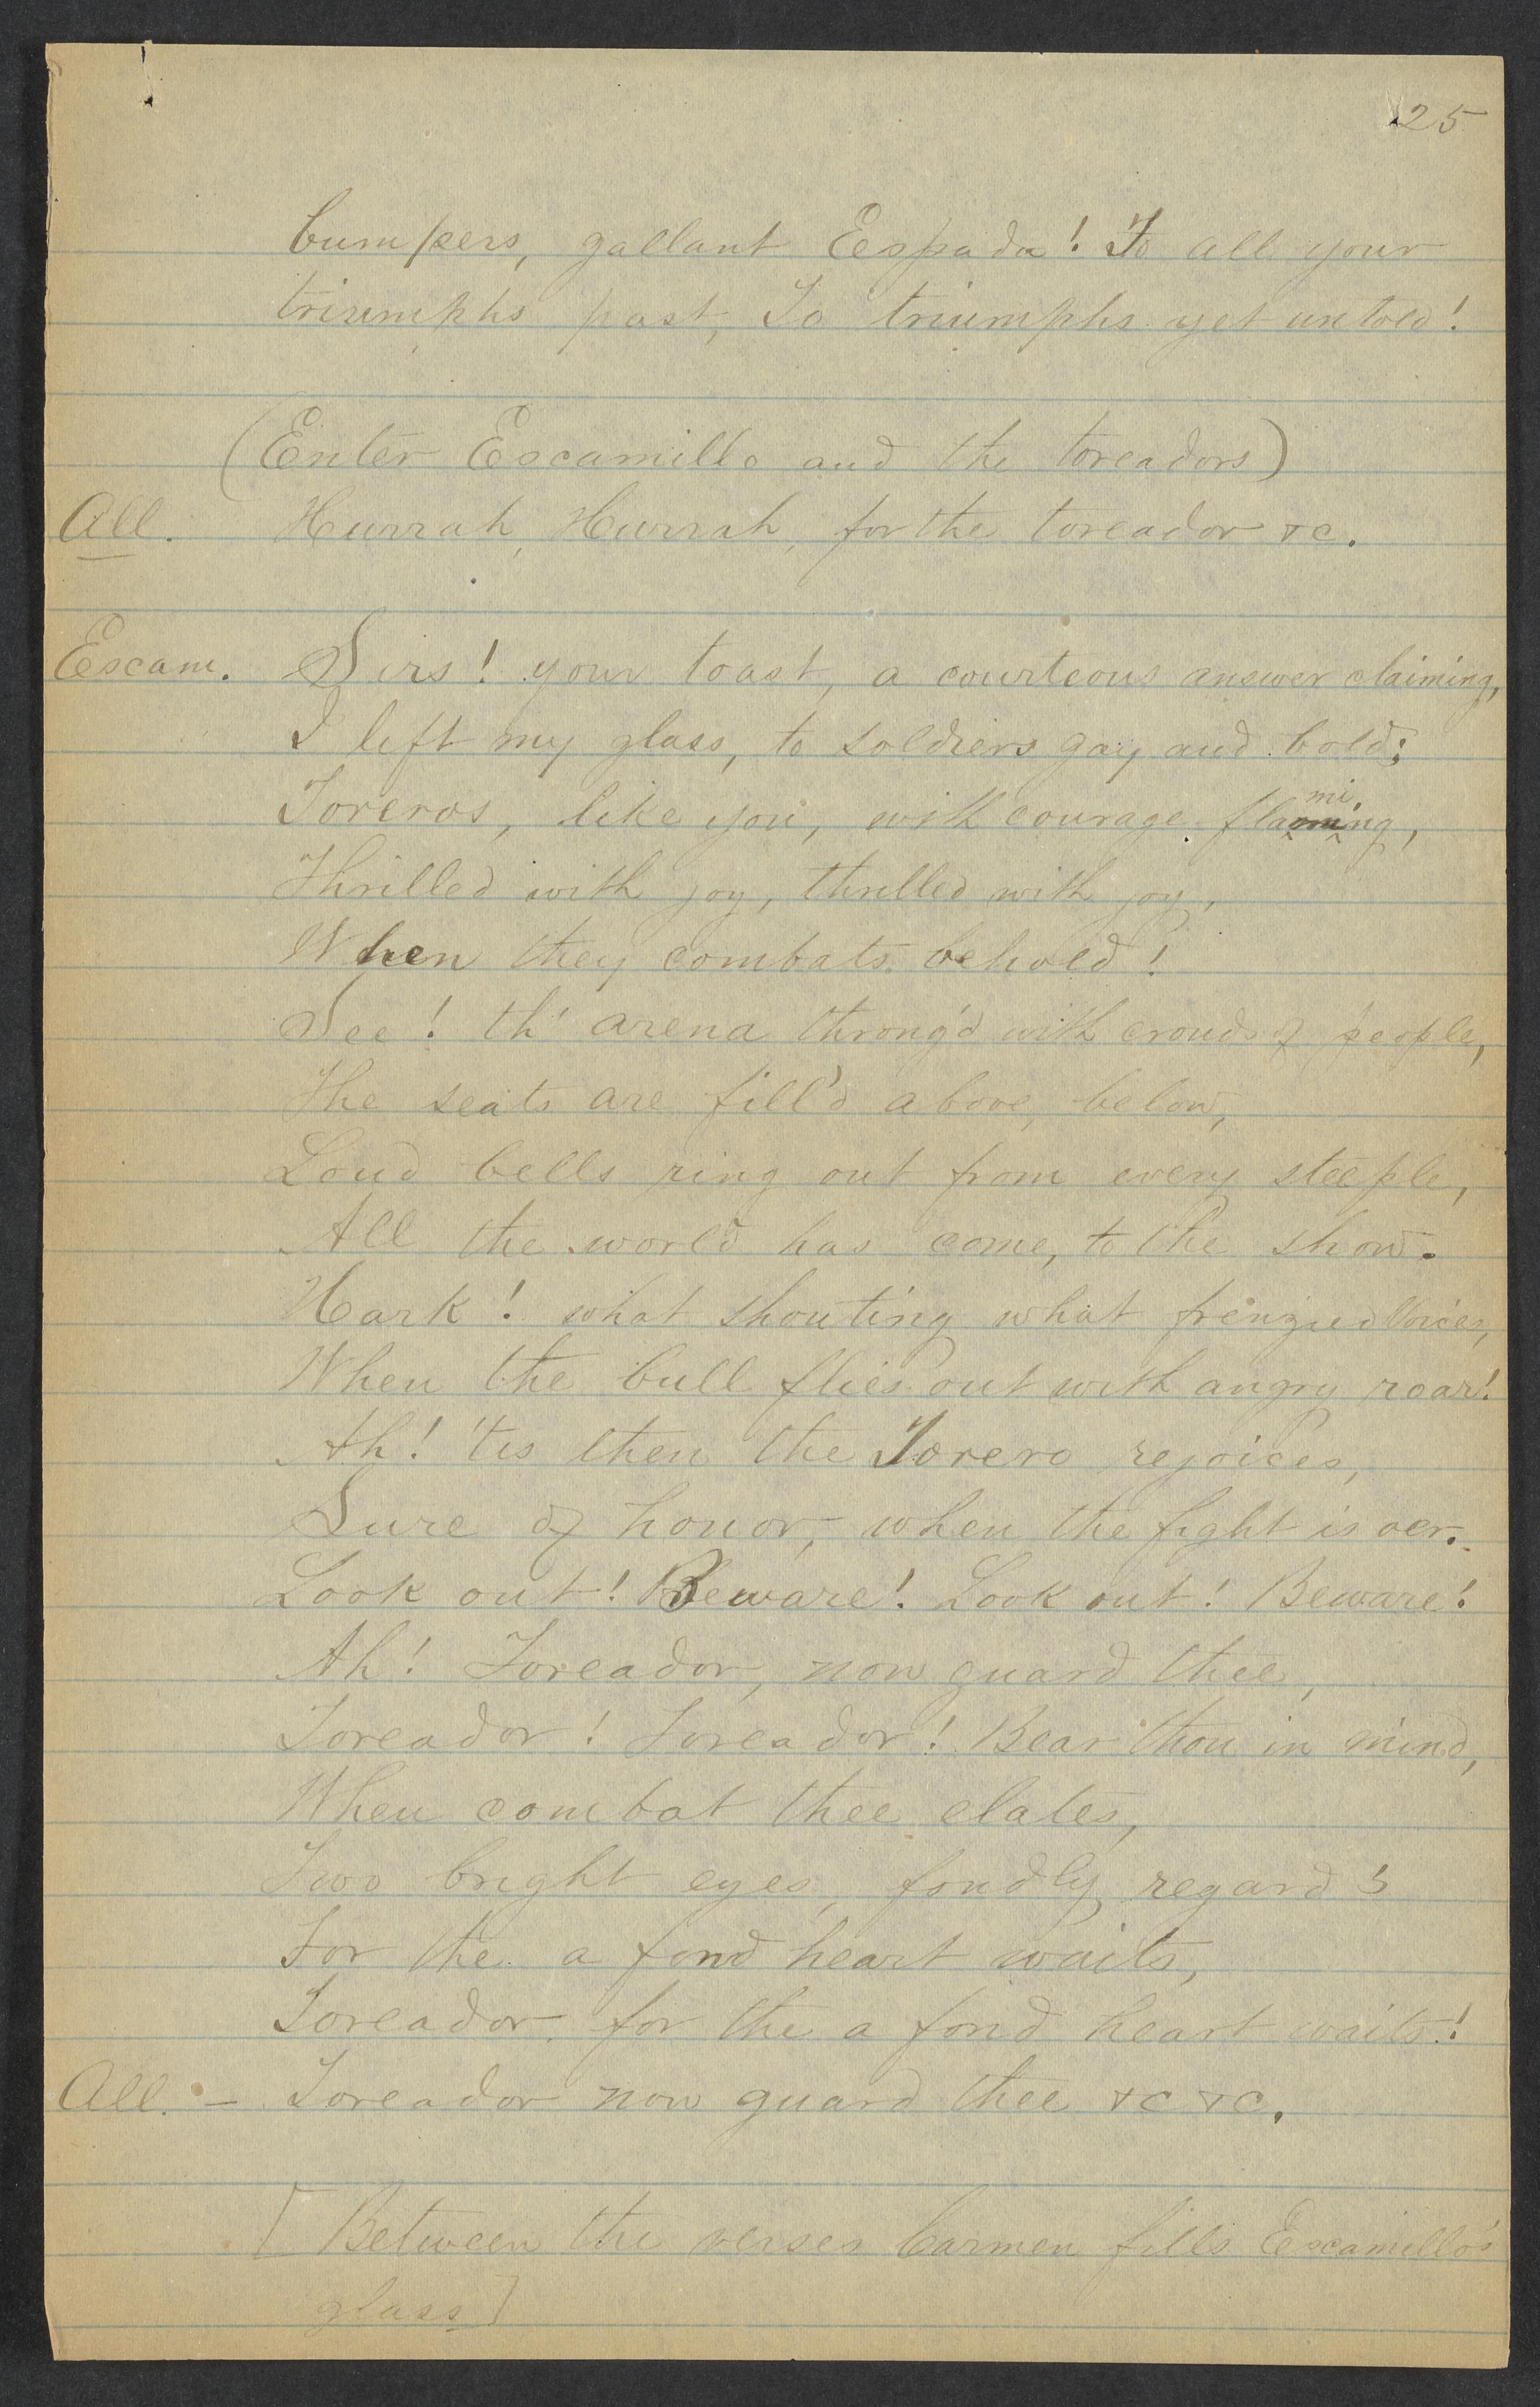 25
bumpers, gallant Espada! To all your
triumphs past, To triumphs yet untold!
(Enter Escamillo and the toreadors)
All. Hurrah, Hurrah, for the toreador &c.
Escam. Sirs! your toast, a courteous answer claiming,
I left my glass, to soldiers gay and bold;
Toreros, like you, with courage flaming,
Thrilled with joy, thrilled with joy,
When they combats behold!
See! th' arena throng'd with crowds of people,
The seats are fill'd above, below,
Loud bells ring out from every steeple,
All the world has come, to the show.
Hark! what shouting what frenzied voices,
When the bull flies out with angry roar!
Ah! 'tis then the Torero rejoices,
Sure of honor, when the fight is oer.
Look out! Beware! Look out! Beware!
Ah! Toreador, now guard thee,
Toreador! Toreador! Bear thou in mind,
When combat thee elates,
Two bright eyes, fondly regard
For the a fond heart waits,
Toreador, for the a fond heart waits!
All. - Toreador now guard thee &c &c.
[Between the verses Carmen fills Escamillo's
glass]